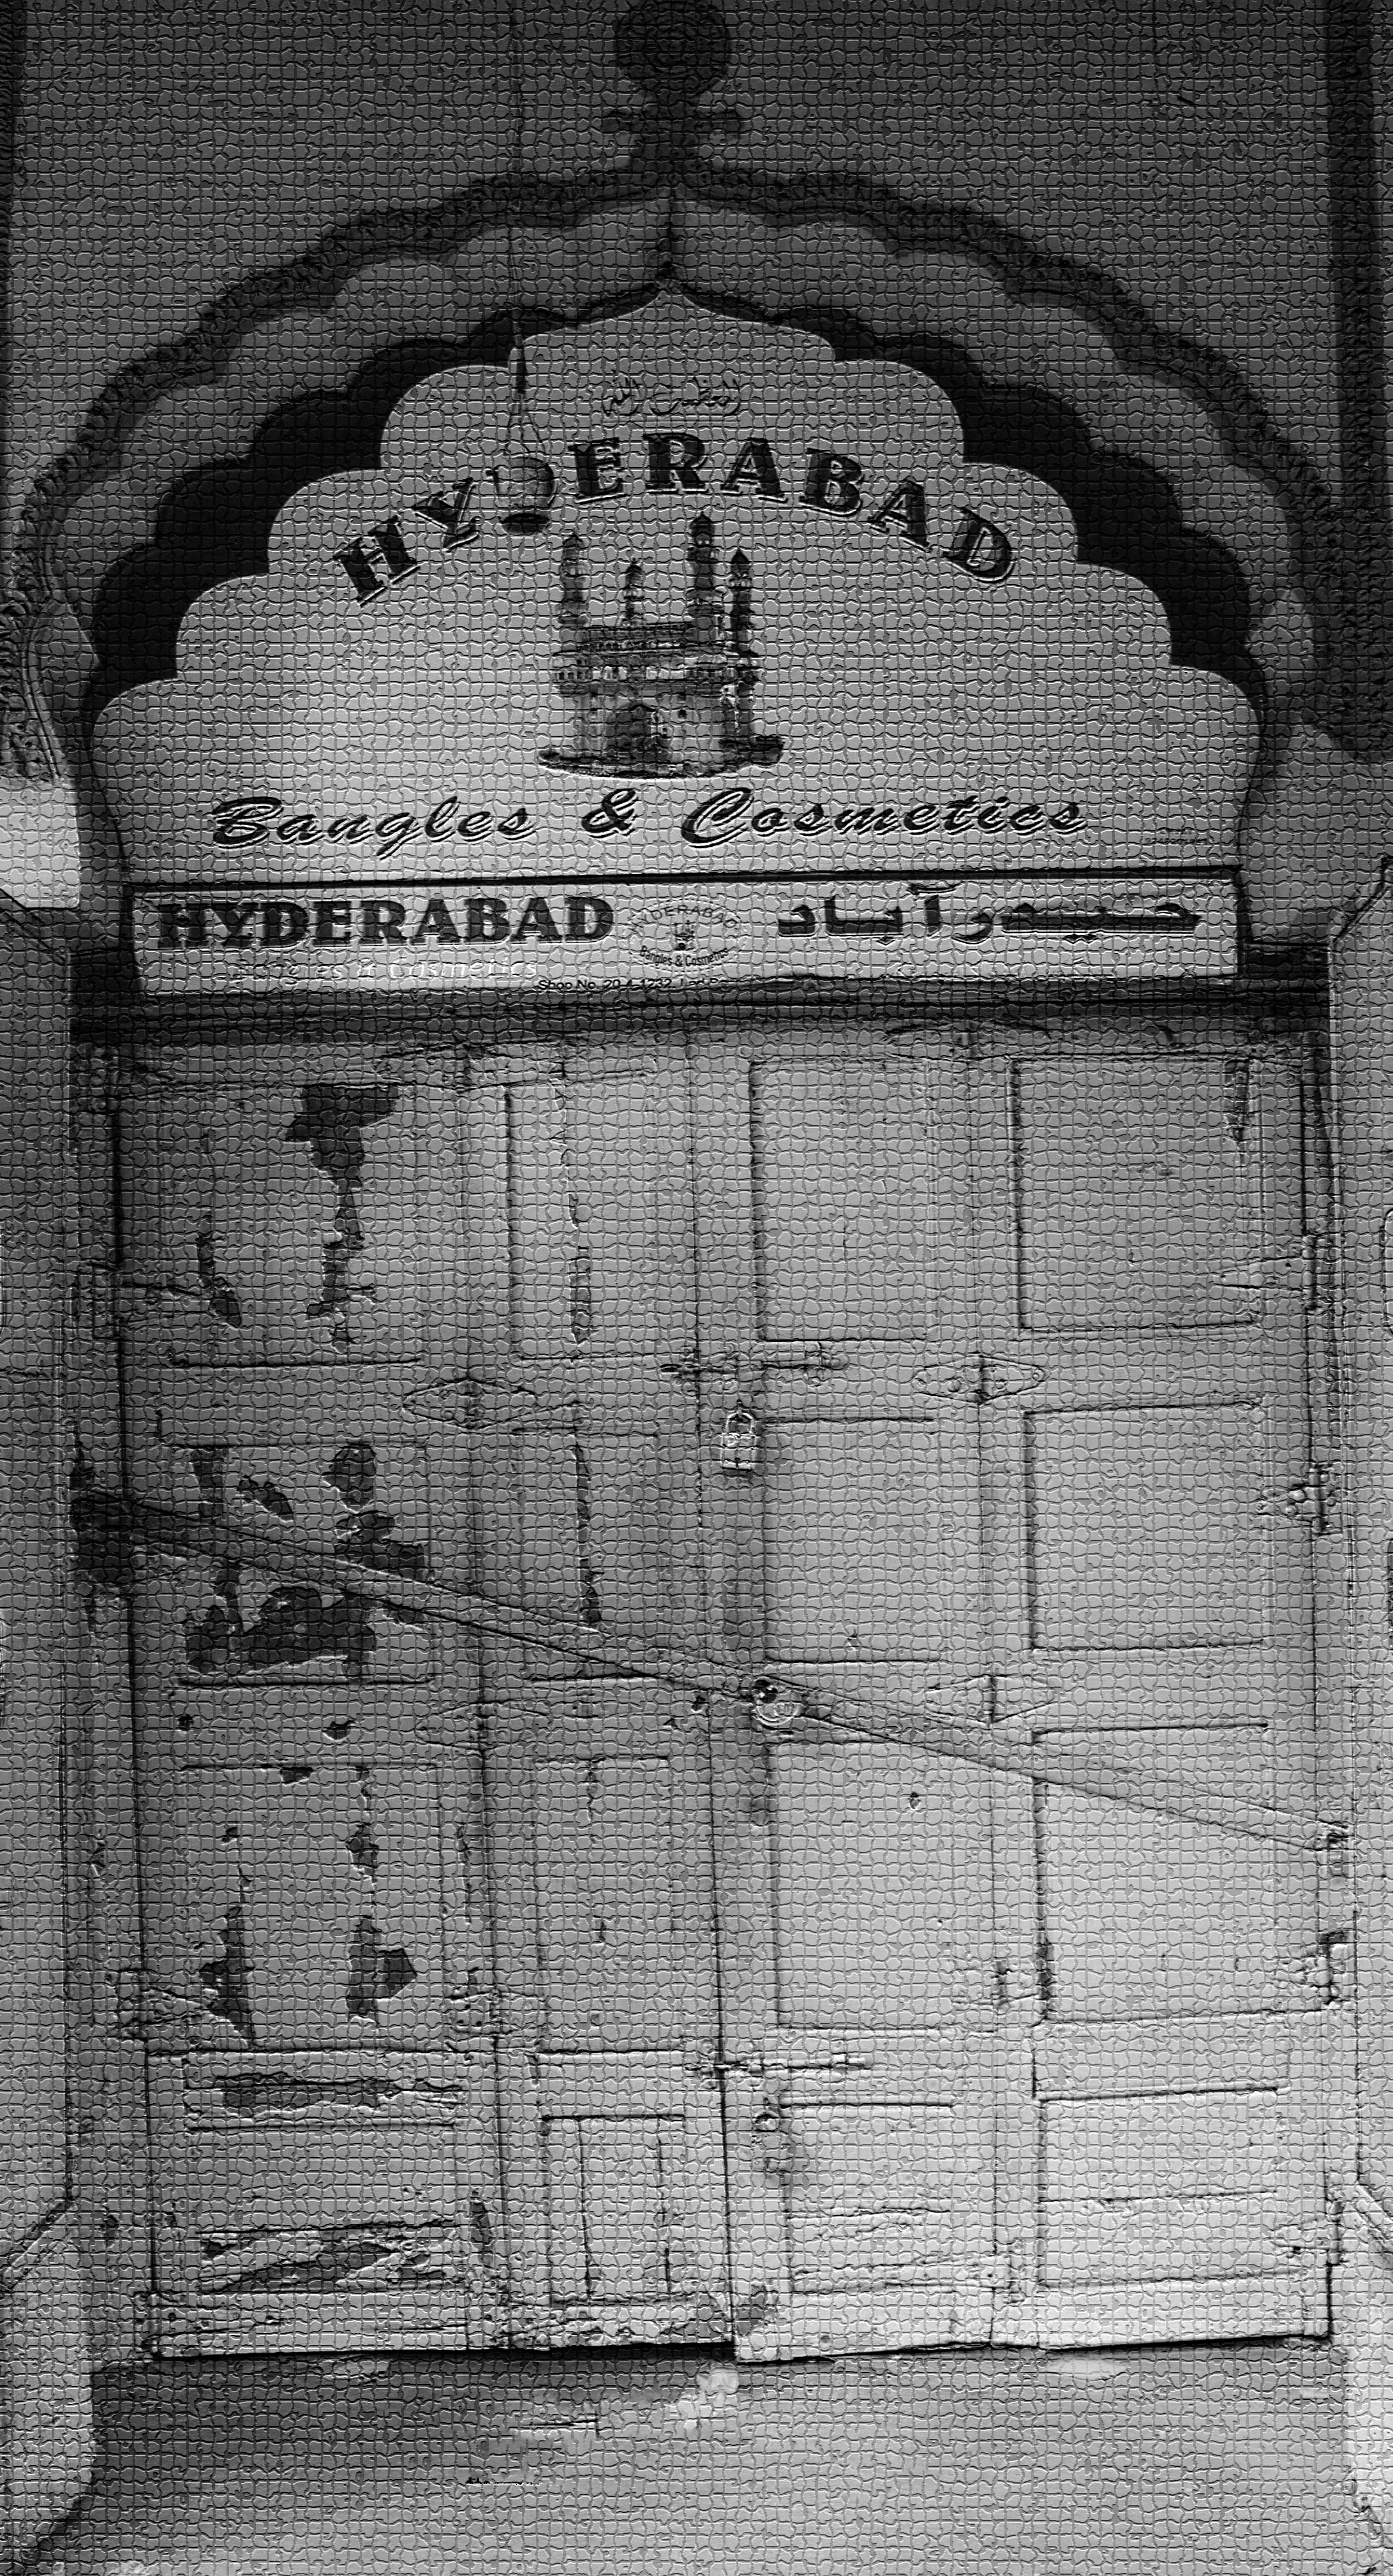 العظمت اللہ
HYDERABAD
Bangles & Cosmetics
HYDERABAD
HYDERABAD
Bangles & Cosmetics
حیدرآباد
Bangles & Cosmetics
Shop No. 20-4-1232,